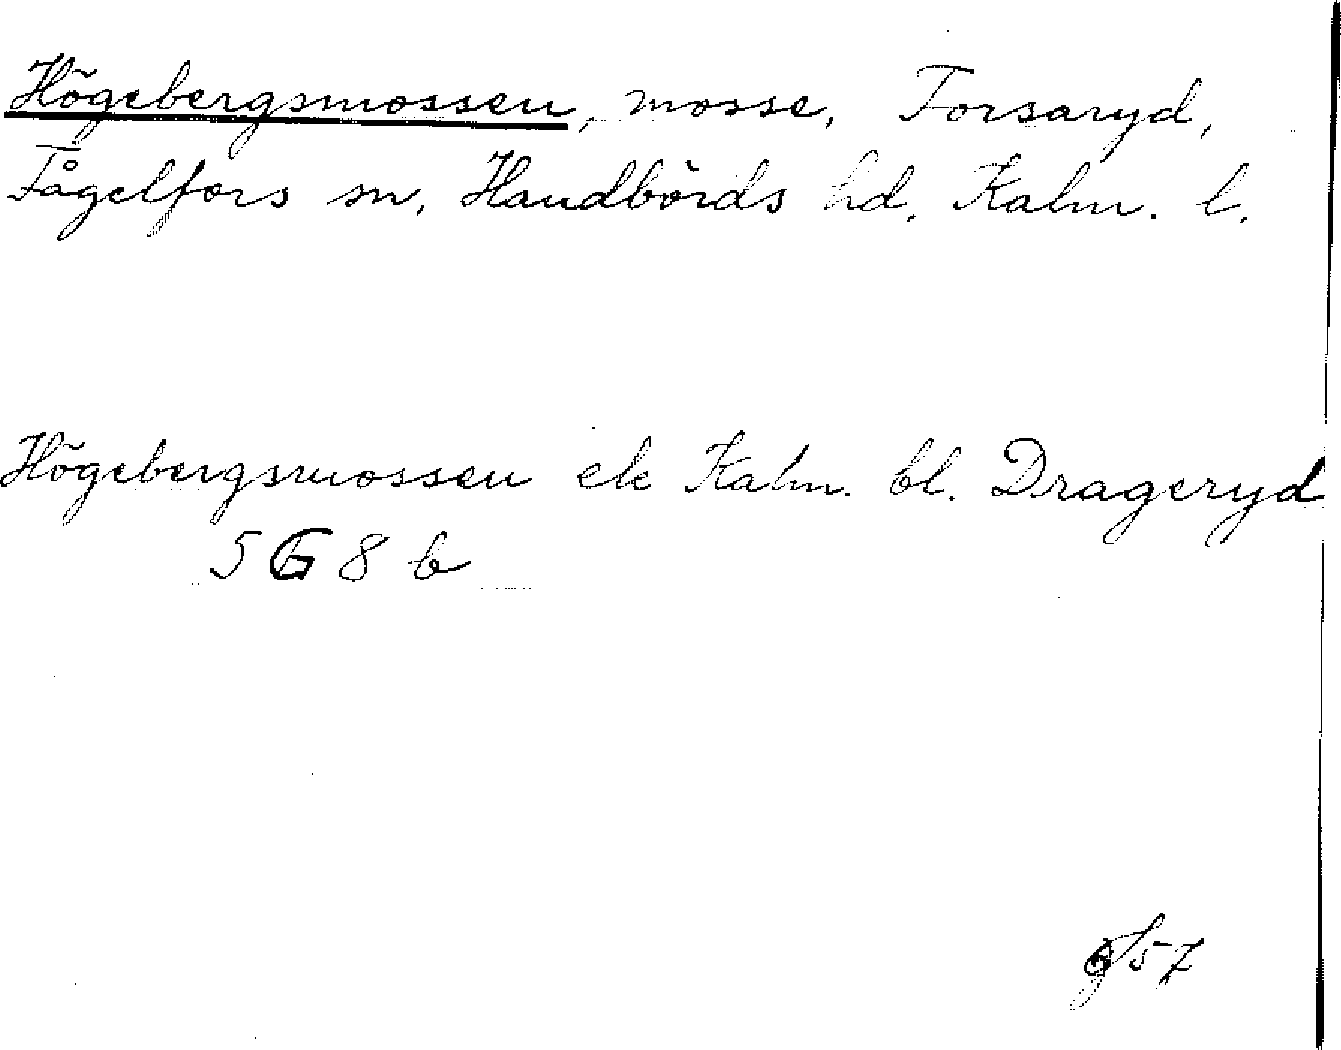 Högebergsmossen, mosse, Forsaryd,
Fågelfors sn, Handbörds hd, Kalm. l.
Högebergsmossen ek Kalm. bl. Drageryd
5 G 8 b
57